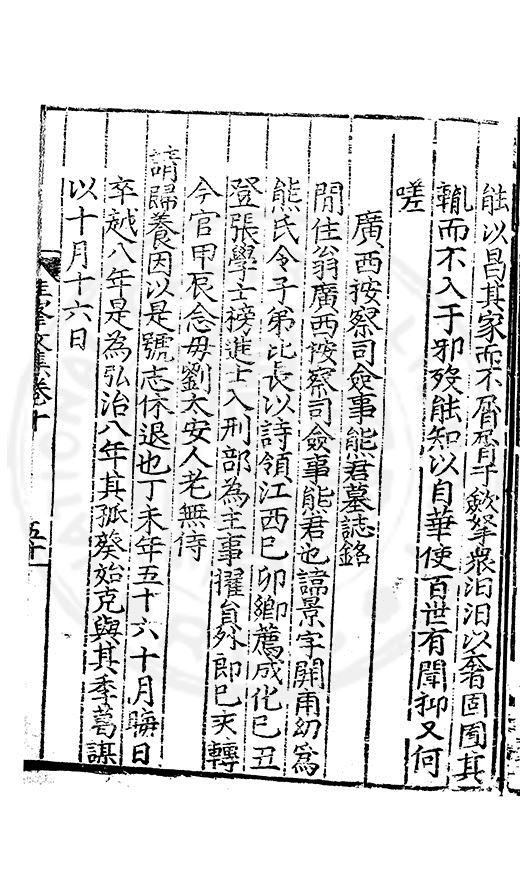 能以昌其家而不屑屑于歛拏衆汨汨以奢固圉其
䡄而不入于邪歿能知以自華使百世有聞抑又何
嗟
廣西按察司僉事熊君墓誌銘
閒住翁廣西按察司僉事熊君也諱景字開甫幼爲
熊氏令子弟比長以詩領江西己卯鄉薦成化己丑
登張學士榜進士入刑部為主事擢員外郎己亥轉
今官甲辰念毋劉太安人老無侍
請歸養因以是號志休退也丁未年五十六十月晦日
卒越八年是為弘治八年其孤葵始克與其季萬謀
以十月十六日
文集卷十
五十一